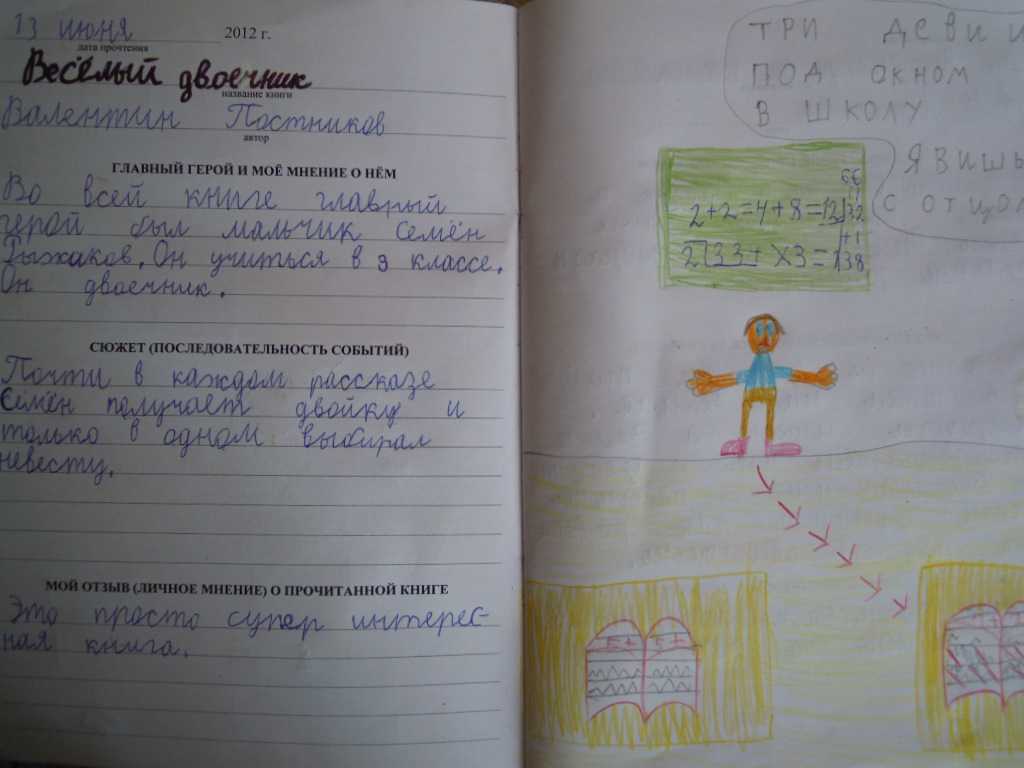 13 июня 2012 г.
дата прочтения
Весёлый двоечник
название книги
Валентин Постников
автор
ГЛАВНЫЙ ГЕРОЙ И МОЁ МНЕНИЕ О НЁМ
Во всей книге главный
герой был мальчик Семён
Рыжаков. Он учиться в 3 классе.
Он двоечник.
СЮЖЕТ (ПОСЛЕДОВАТЕЛЬНОСТЬ СОБЫТИЙ)
Почти в каждом рассказе
Семён получает двойку и
только в одном выбирал
невесту.
МОЙ ОТЗЫВ (ЛИЧНОЕ МНЕНИЕ) О ПРОЧИТАННОЙ КНИГЕ
Это просто супер интерес-
ная книга.
ТРИ ДЕВИ
ПОД ОКНОМ
В ШКОЛУ
ЯВИШЬ
С ОТЦОМ
2+2=4+8=